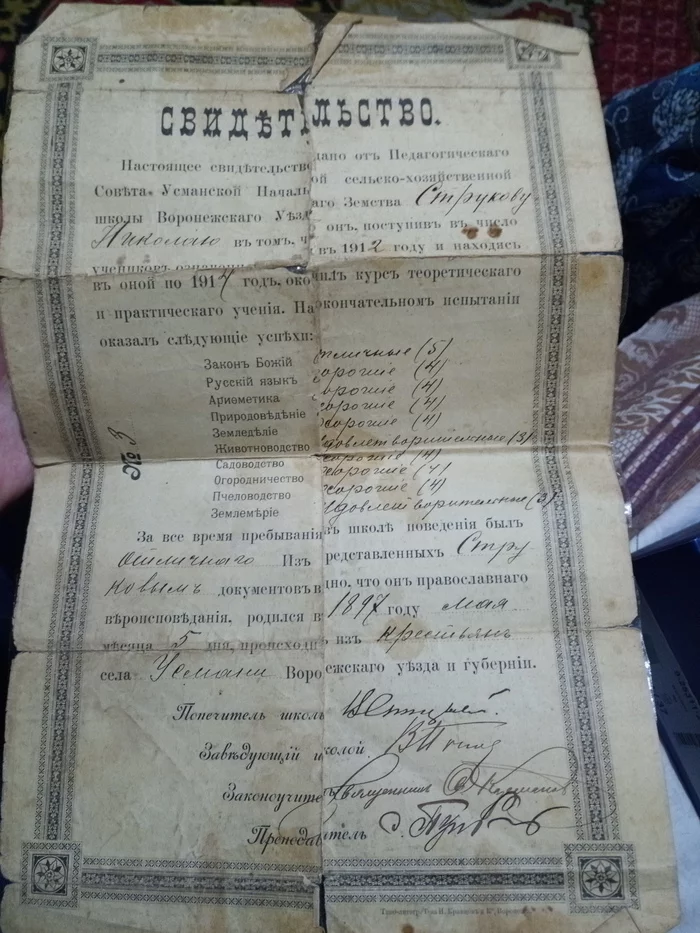 СВИДѢТЕЛЬСТВО.
Настоящее свидѣтельство дано отъ Педагогическаго
Совѣта Усманской Началь ой сельско-хозяйственной
школы Воронежскаго Уѣзд аго Земства Струкову
Николаю въ томъ, ч онъ, поступивъ въ число
учениковъ въ 1912 году и находясь
въ оной по 1917 годъ, око илъ курсъ теоретическаго
и практическаго ученія. На окончательномъ испытаніи
оказалъ слѣдующіе успѣхи:
Законъ Божій тличные (5)
Русскій языкъ хорошіе (4)
Ариѳметика хорошіе (4)
Природовѣдѣніе хорошіе (4)
Земледѣліе хорошіе (4)
Животноводство удовлетворительные (3)
Садоводство хорошіе (4)
Огородничество хорошіе (4)
Пчеловодство хорошіе (4)
Землемѣріе удовлетворительные (3)
№ 3
За все время пребыванія въ школѣ поведенія былъ
отличнаго Изъ редставленныхъ Стру
ковымъ документовъ в дно, что онъ православнаго
вѣроисповѣданія, родился въ 1897 году мая
мѣсяца 5 дня, происход изъ крестьянъ
села Усмани Воро ежскаго уѣзда и губерніи.
Попечитель школы
Завѣдующій школой
Законоучитель Священникъ
Преподаватель